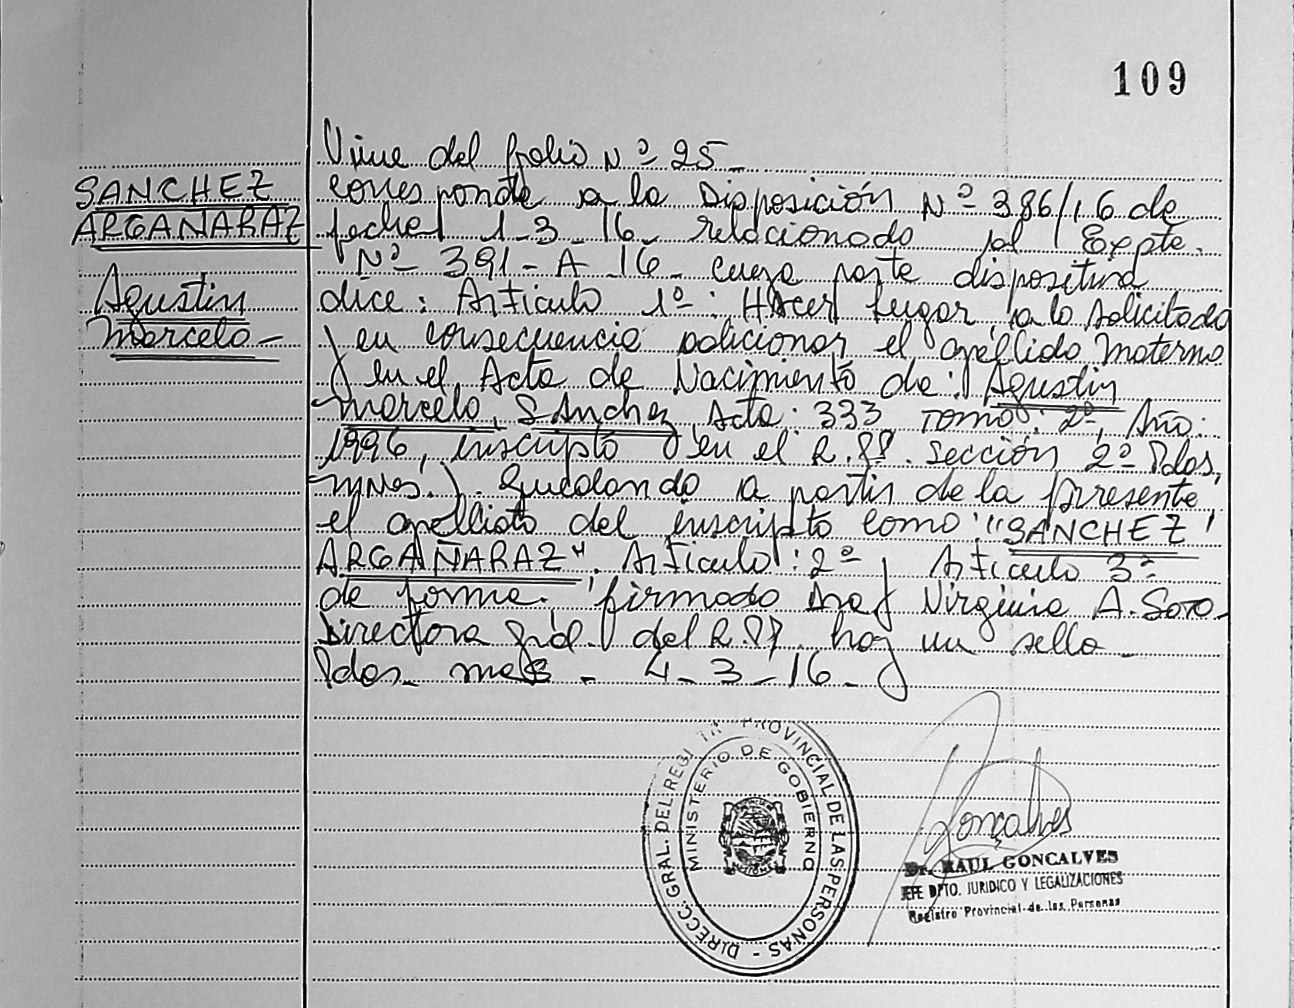 109
SANCHEZ
ARGAÑARAZ
Agustin
Marcelo -
Viene del folio Nº 25 -
corresponde a la Disposición Nº 386/16 de
fecha 1-3-16- relacionado al Expte.
Nº 391-A-16- cuya parte dispositiva
dice: Articulo 1º: Hacer lugar a lo solicitado
y en consecuencia adicionar el apellido materno
en el Acta de Nacimiento de: Agustin
Marcelo Sanchez, Acta: 333 Tomo: 2º, Año:
1996, inscripto en el R.PP. Sección 2º Pdas,
Mnes.). Quedando a partir de la presente,
el apellido del inscripto como "SANCHEZ
ARGAÑARAZ". Articulo: 2º y Articulo 3º
de forma, firmado Dra Virginia A. Soto-
Directora Gral. del R.PP. hay un sello-
Pdas- mnes - 4-3-16-
DIRECC. GRAL. DEL REGI TR PROVINCIAL DE LAS PERSONAS -
MINISTERIO DE GOBIERNO
MISIONES
Gonçalves
Dr. RAUL GONCALVES
JEFE DPTO. JURIDICO Y LEGALIZACIONES
Registro Provincial de las Personas